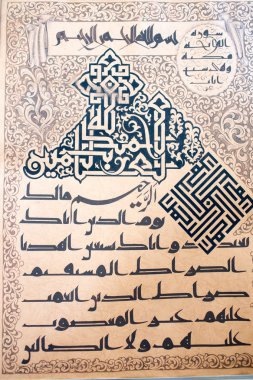 بسم الله الرحمن الرحيم
سورة
الفاتحة
مكية
الحمد لله
رب العالمين
الرحيم ملك
يوم الدين اياك
نعبد و اياك نستعين اهدنا
الصراط المستقيم
صراط الذين انعمت
عليهم غير المغضوب
عليهم ولا الضالين